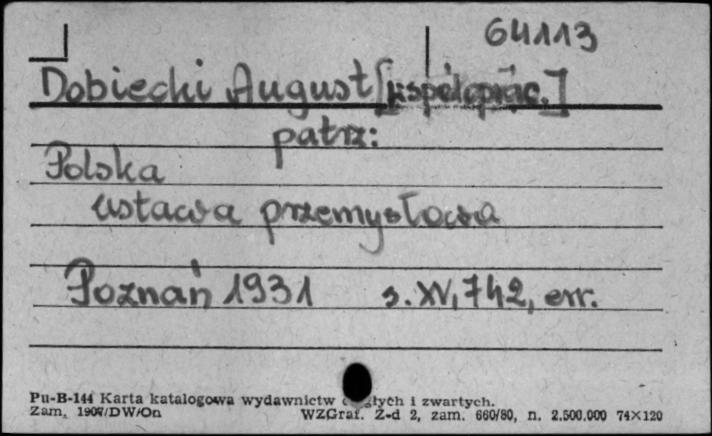 64113
Dobiecki August [współoprac.]
patrz:
Polska
ustawa przemysłowa
Poznań 1931 s. XV, 742, err.
Pu-B-144 Karta katalogowa wydawnictw ciągłych i zwartych.
Zam. 1907/DW/On WZGraf. Z-d 2, zam. 660/80, n. 2.500.000 74×120